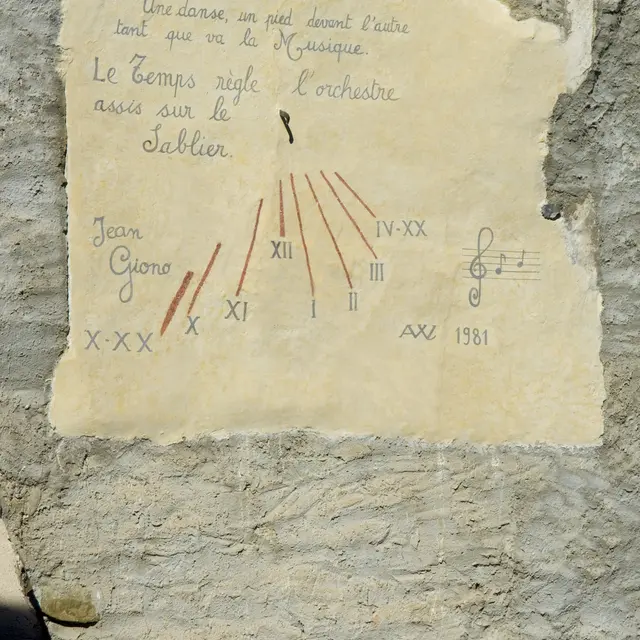 Une danse, un pied devant l'autre
tant que va la Musique.
Le Temps règle l'orchestre
assis sur le
Sablier.
Jean
Giono
X·XX
X
XI
XII
I
II
III
IV·XX
1981